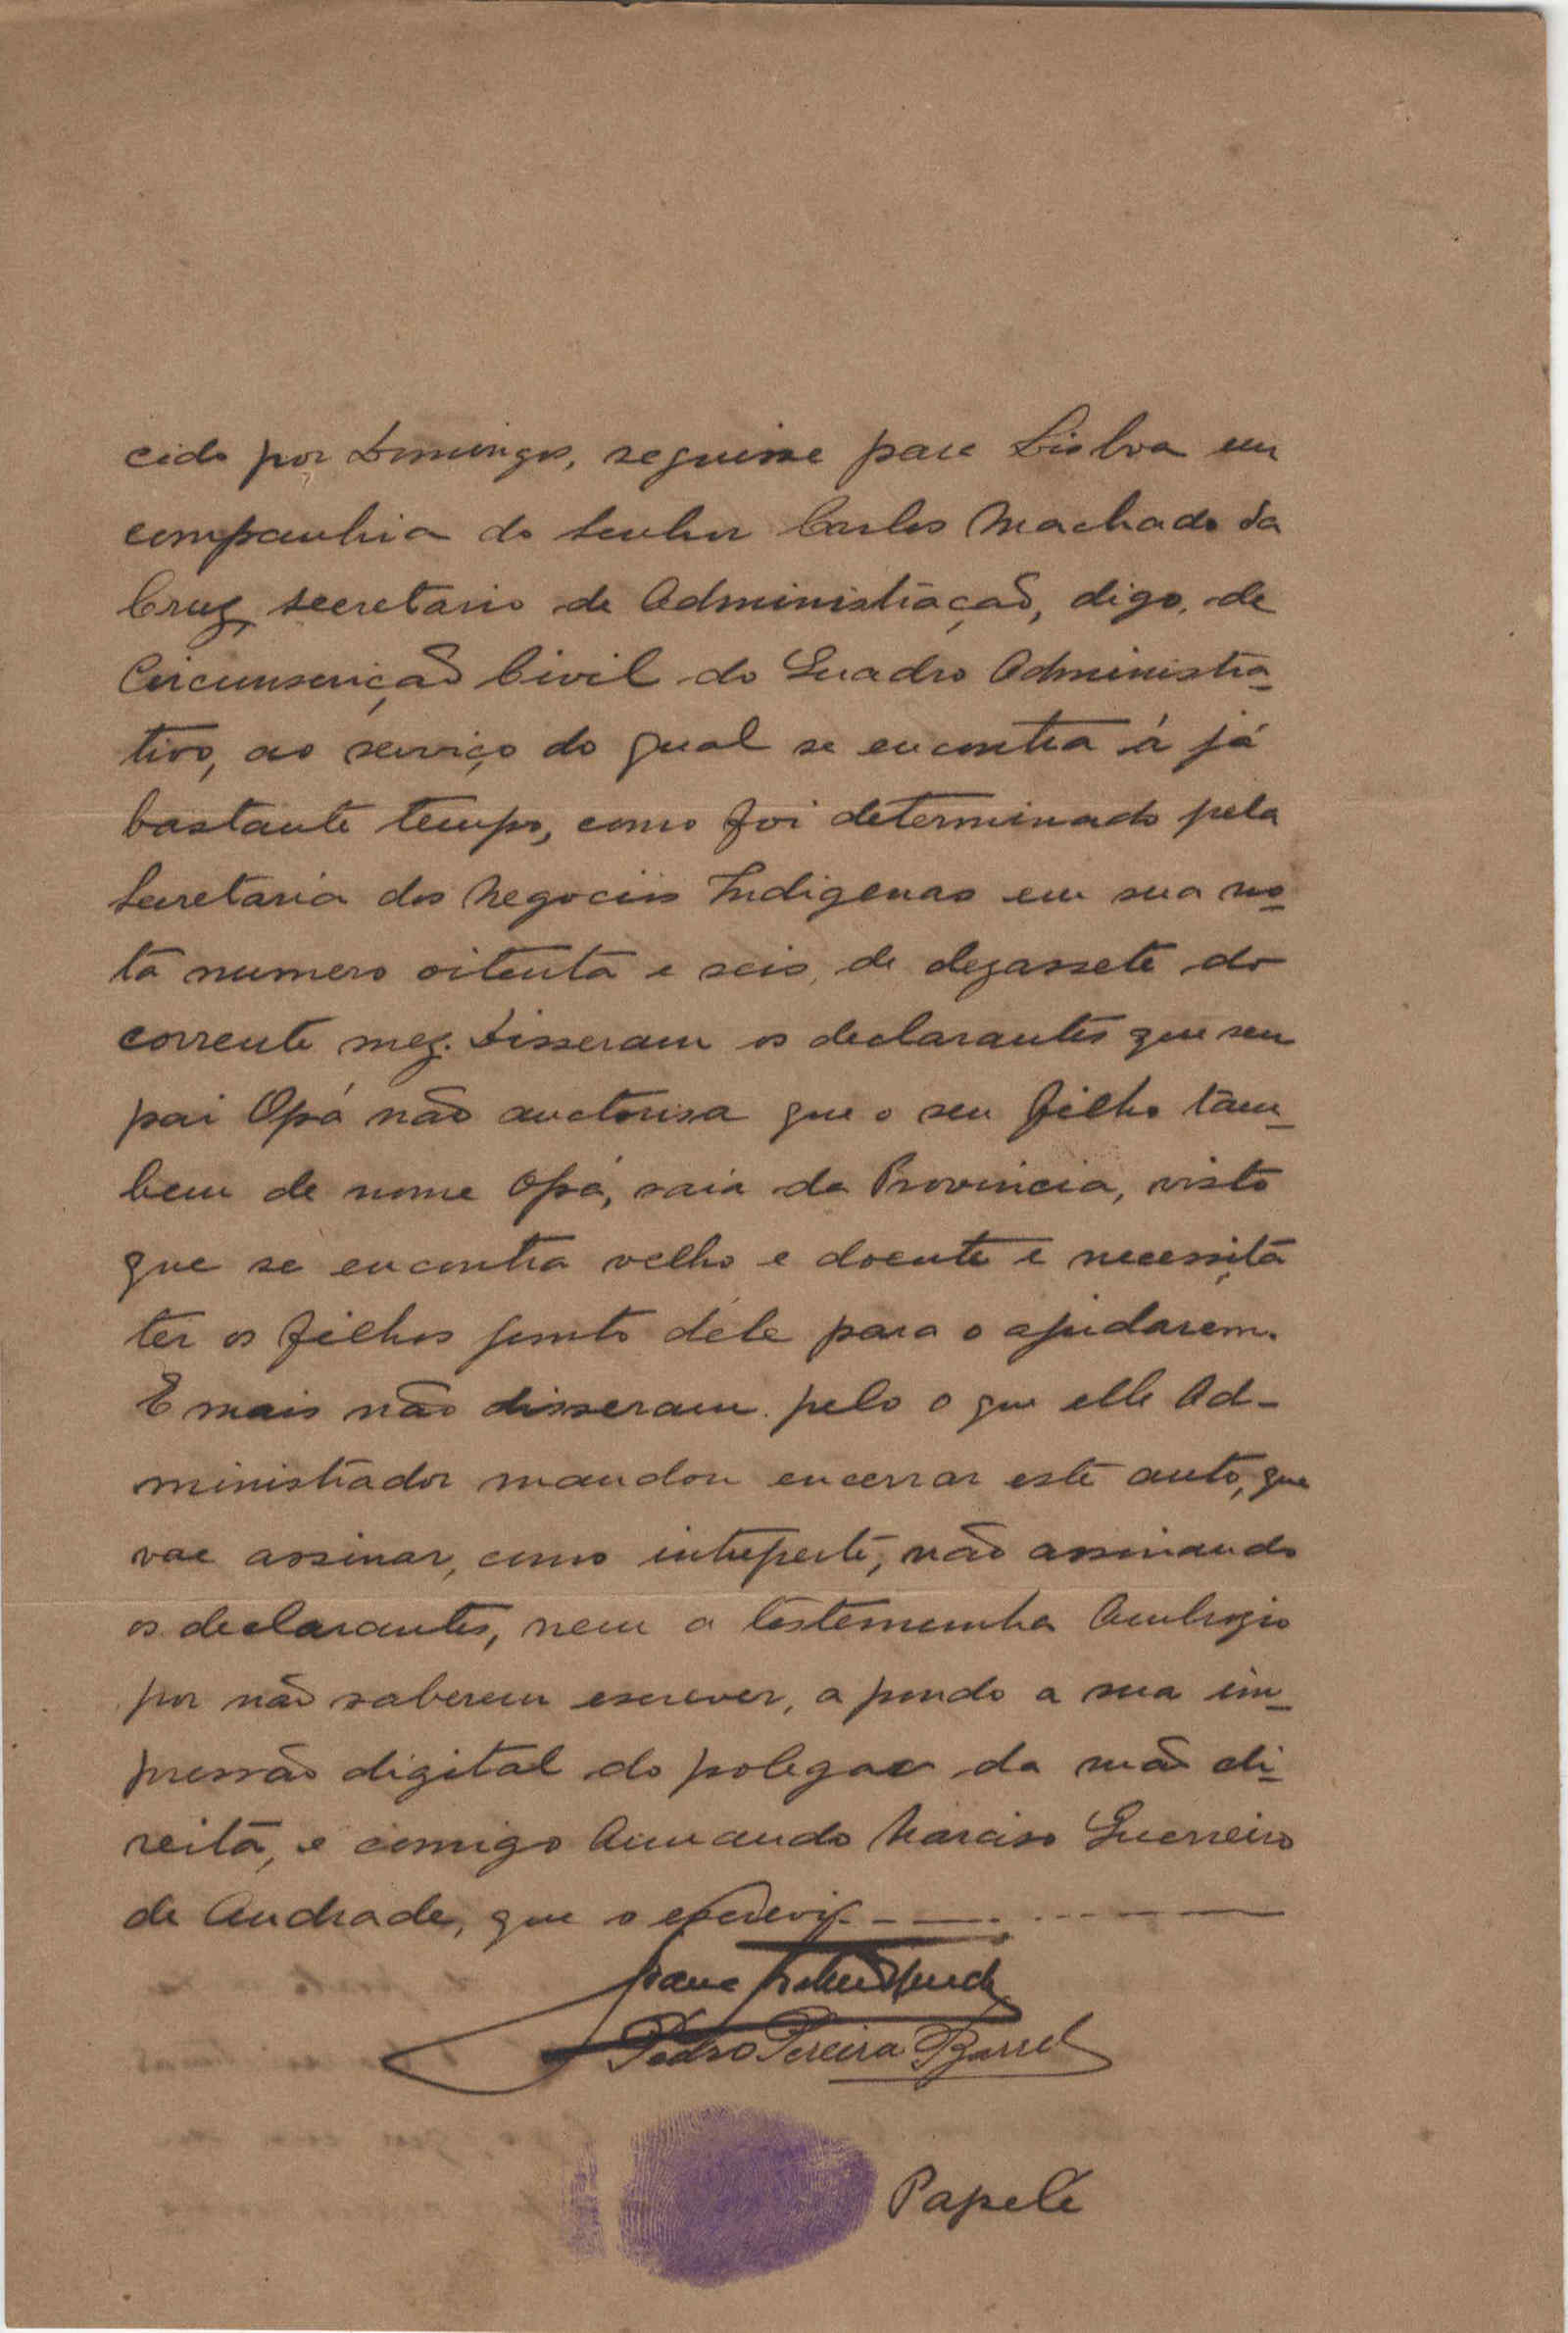 cido por Domingos, seguisse para Lisboa em
companhia do Senhor Carlos Machado da
Cruz, secretario de Administração, digo, de
Circunscrição Civil do Quadro Administra-
tivo, ao serviço do qual se encontra á já
bastante tempo, como foi determinado pela
Secretaria dos Negocios Indigenas em sua no-
ta numero oitenta e seis, de dezassete do
corrente mez. Disseram os declarantes que seu
pai Opá não auctorisa que o seu filho tam-
bem de nome Opá, saia da Provincia, visto
que se encontra velho e doente e necessita
ter os filhos junto déle para o ajudarem.
E mais não disseram pelo o que elle Ad-
ministrador mandou encerrar este auto, que
vae assinar, como interpete, não assinando
os declarantes, nem a testemunha Ambrozio
por não saberem escrever, apondo a sua im-
pressão digital do polegar da mão di-
reita, e comigo Armando Narciso Guerreiro
de Andrade, que o escrevi.
Pedro Pereira
Papelé